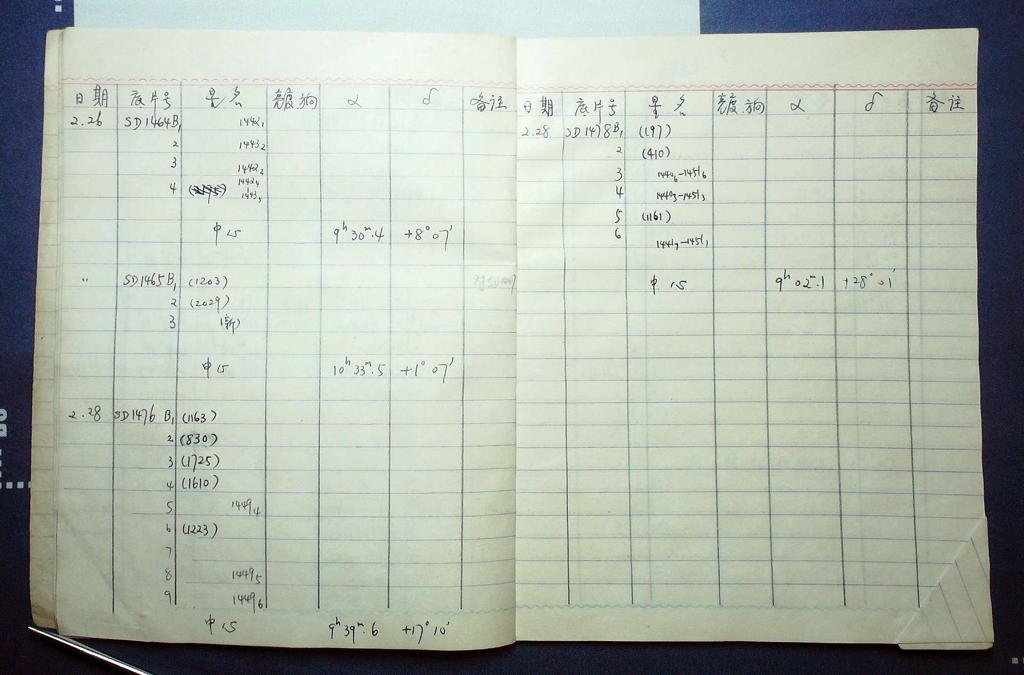 日期 底片号 星名 亮度 α δ 备注
2.26 SD1464B1 1442₁
2 1443₂
3 1442₂
4 1442₄
1443₃
中心 9ʰ30ᵐ.4 +8°07′
〃 SD1465B1 (1203)
2 (2029)
3 (新)
中心 10ʰ33ᵐ.5 +1°07′
2.28 SD1476B1 (1163)
2 (830)
3 (1725)
4 (1610)
5 1449₄
6 (1223)
7
8 1449₅
9 1449₆
中心 9ʰ39ᵐ.6 +17°10′
日期 底片号 星名 亮度 α δ 备注
2.28 SD1478B1 (197)
2 (410)
3 1440₆-1451₆
4 1440₃-1451₃
5 (1161)
6 1441₇-1451₁
中心 9ʰ02ᵐ.1 +28°01′